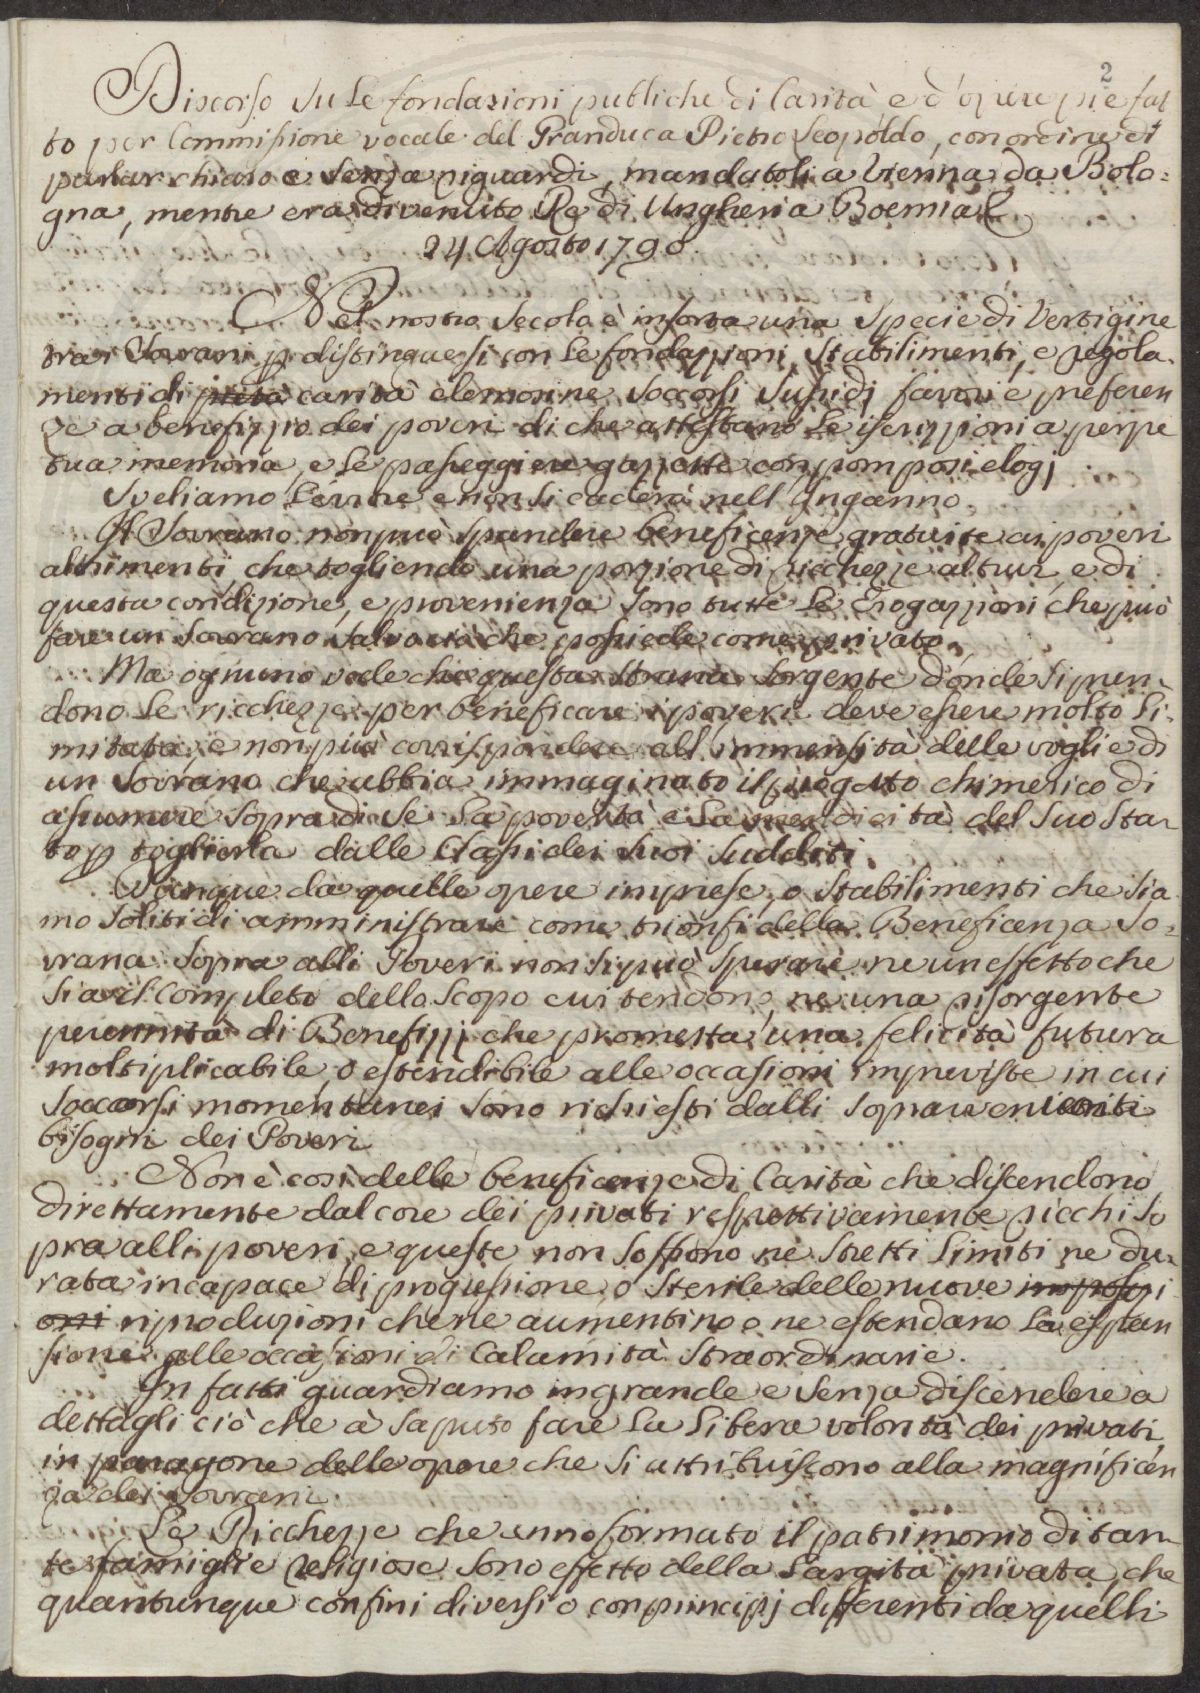 2
Discorso su le fondazioni publiche di Carità e d'opere pie fat
to per Commissione vocale del Granduca Pietro Leopoldo, con ordine di
parlar chiaro e senza riguardi, mandatoli a Vienna da Bolo=
gna, mentre era divenuto Re di Ungheria Boemia &
24 Agosto 1790.
Nel nostro secolo è insorta una specie di Vertigine
tra i Sovrani p distinguersi con le fondazzioni, stabilimenti, e regola-
menti di pietà carità elemosine soccorsi sussidj favori e preferen
ze a benefizzio dei poveri di che attestano le iscrizzioni a perpe
tua memoria, e le passeggiere gazzette con pomposi elogj
Sveliamo l'arcane e non si caderà nell'Inganno.
Il Sovrano non può spandere beneficenze gratuite ai poveri
altrimenti, che togliendo una porzione di ricchezze altrui, e di
questa condizione, e provenienza sono tutte le Erogazzioni, che può
fare un Sovrano salvo ciò che possiede come privato.
Ma ognuno vede che questa strana sorgente d'onde si pren-
dono le ricchezze per beneficare i poveri deve essere molto li-
mitata, e non può corrispondere all'immensità delle voglie di
un Sovrano che abbia immaginato il progetto chimerico di
assumere sopra di se la povertà e la mendicità del suo Sta-
to p toglierla dalle Classi dei suoi sudditi.
Dunque da quelle opere imprese, o stabilimenti che sia
mo soliti di amministrare come trionfi della Beneficenza So=
vrana sopra alli Poveri non si può sperare ne un effetto che
sia il completo dello scopo cui tendono, ne una risorgente
perennità di Benefizzj che prometta una felicità futura
moltiplicabile, o estendibile alle occasioni impreviste in cui
soccorsi momentanei sono richiesti dalli sopravenienti
bisogni dei Poveri
Non è così delle beneficenze di Carità che discendono
direttamente dal core dei privati respettivamente ricchi so
pra alli poveri, e queste non soffrono ne stretti limiti ne du-
rata incapace di progressione o sterile delle nuove imposizi
oni riproduzioni che ne aumentino o ne estendano la espan
sione alle occasioni di Calamità straordinarie.
In fatti guardiamo in grande e senza discendere a
dettagli ciò che à saputo fare la libera volontà dei privati
in paragone delle opere che si attribuiscono alla magnificen
za dei Sovrani.
Le Ricchezze che anno formato il patrimonio di tan-
te famiglie religiose sono effetto della largità privata, che
quantunque con fini diversi o con principj differenti da quelli